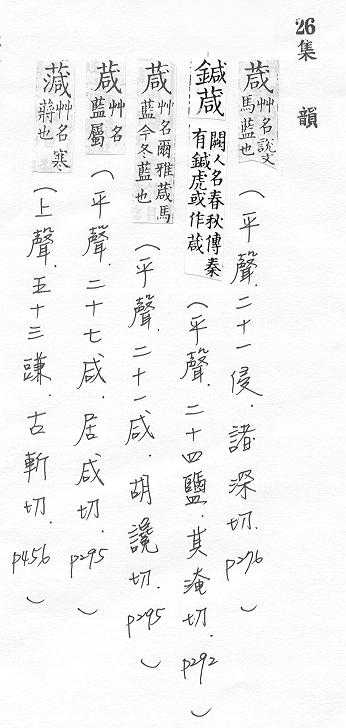 26集韻
葴 艸名說文馬藍也（平聲.二十一侵.諸深切.p276）
鍼葴 闕人名春秋傳秦有鍼虎或作葴（平聲.二十四鹽.其淹切.p292）
葴 艸名爾雅葴馬藍今冬藍也（平聲.二十一咸.胡讒切.p295）
葴 艸名藍屬（平聲.二十七咸.居咸切.p295）
艸名寒蔣也（上聲.五十三豏.古斬切.p456）